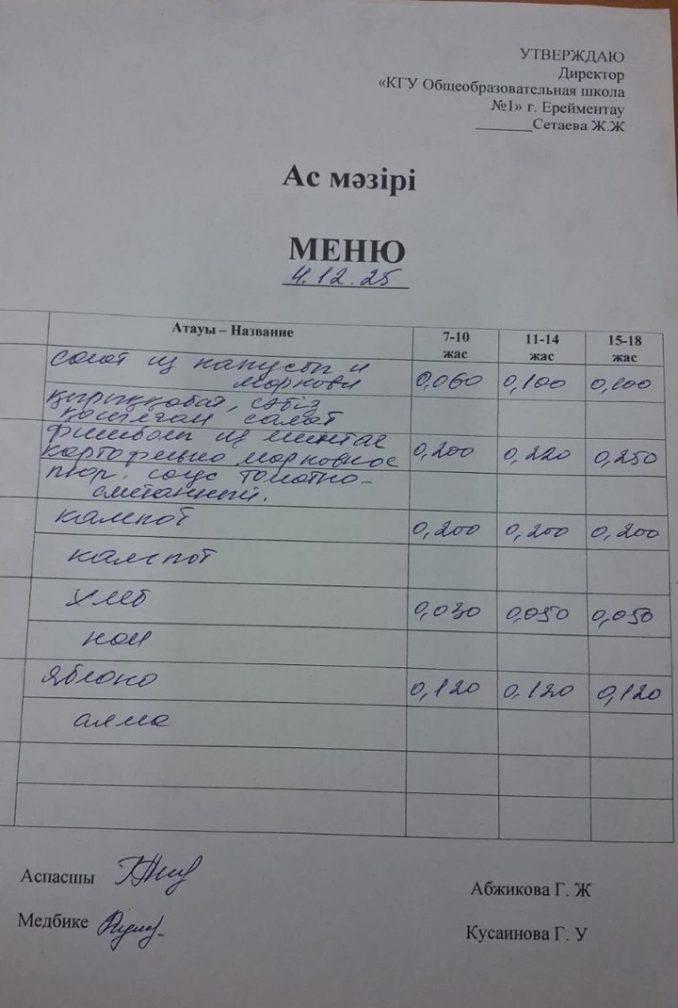 УТВЕРЖДАЮ
Директор
«КГУ Общеобразовательная школа
№1» г. Ерейментау
_______Сетаева Ж.Ж
Ас мәзірі
МЕНЮ
4.12.25
Атауы – Название 7-10 жас 11-14 жас 15-18 жас
салат из капусты и
моркови 0,060 0,100 0,100
қырыққабат, сәбіз
қосылған салат
фишболы из минтая
картофельно морковное 0,200 0,220 0,250
пюр. соус томатно-
сметанный.
компот 0,200 0,200 0,200
компот
хлеб 0,030 0,050 0,050
нан
яблоко 0,120 0,120 0,120
алма
Аспасшы Абжикова Г. Ж
Медбике Кусаинова Г. У